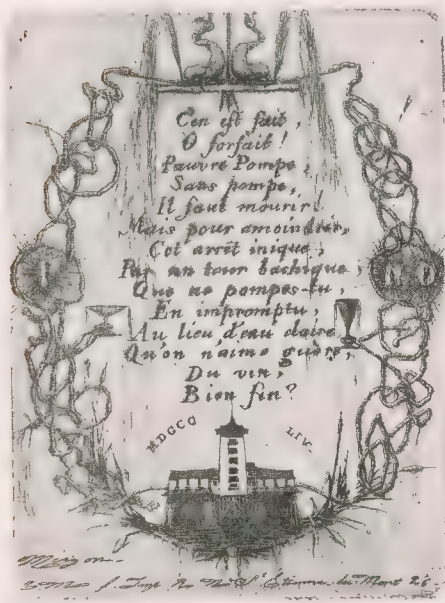 C'en est fait,
O forfait!
Pauvre Pompe,
Sans pompe,
Il faut mourir!
Mais pour amoindrir,
Cet arrêt inique,
Par un tour bachique,
Que ne pompes-tu,
En impromptu,
Au lieu d'eau claire
Qu'on n'aime guère,
Du vin,
Bien fin?
MDCCC LIV.
Meryon
R. Nve St Étienne-du-Mont 26.